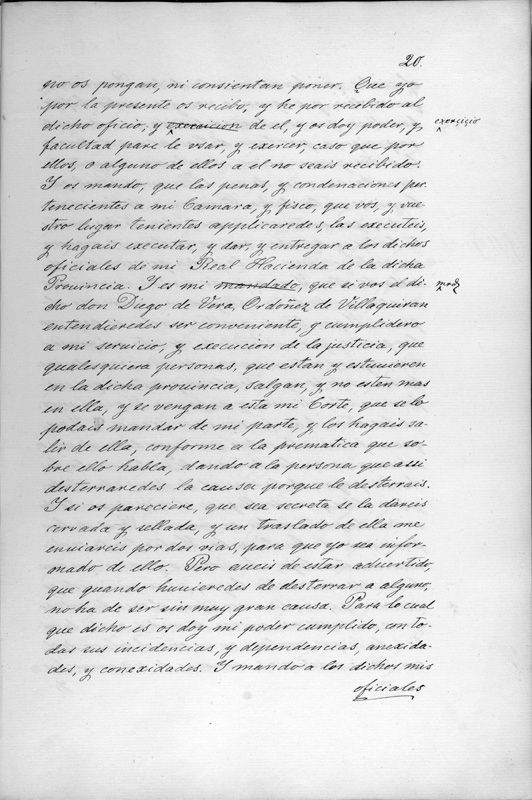 20.
no os pongan, ni consientan poner. Que yo
por la presente os recibo, y he por recebido al
dicho oficio, y execuicion de el, y os doy poder, y, exerçiçio
facultad pare le vsar, y exercer, caso que por
ellos, o alguno de ellos a el no seais recibido.
I os mando, que las penas, y condenaciones per
tenecientes a mi Camara, y, fisco, que vos, y vue-
stro lugar tenientes applicaredes, las executeis,
y hagais executar, y dar, y entregar a los dichos
oficiales de mi Real Hacienda de la dicha
Prouincia. I es mi mandado, que si vos el di-
cho don Diego de Vera, Ordoñez de Villaquiran
entendieredes ser conveniente, y cumplidero
a mi seruicio, y execucion de la justicia, que
qualesquiera personas, que estan y estuuieren
en la dicha prouincia, salgan, y no esten mas
en ella, y se vengan a esta mi Corte, que se lo
podais mandar de mi parte, y los hagais sa-
lir de ella, conforme a la prematica que so-
bre ello habla, dando a la persona que assi
desterraredes la causa porque le desterrais.
I si os pareciere, que sea secreta se la dareis
cerrada y sellada, y un traslado de ella me
enuiareis por dos vias, para que yo sea infor-
mado de ello. Pero aueis de estar aduertido,
que quando huuieredes de desterrar a alguno,
no ha de ser sin muy gran causa. Para lo cual
que dicho es os doy mi poder cumplido, con to-
das sus incidencias, y dependencias, anexida-
des, y conexidades. I mando a los dichos mis
oficiales